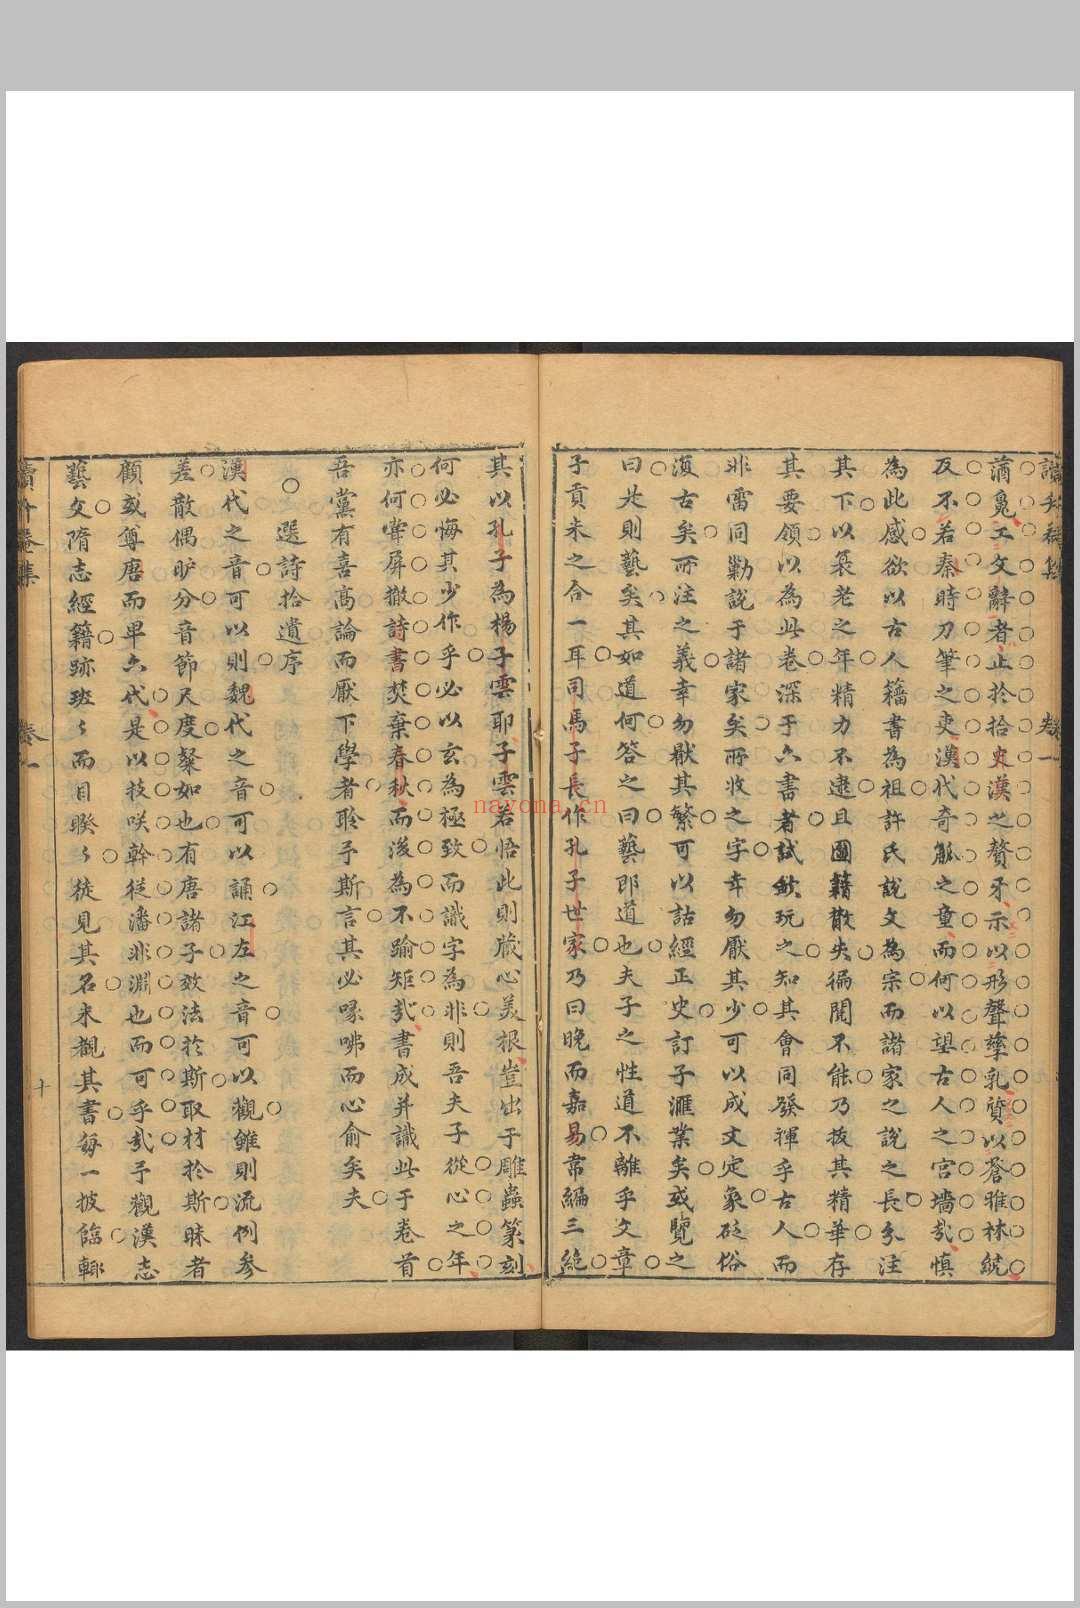 蒨鳧工文辭者止於拾史漢之贅牙示以形聲孳乳質以蒼雅林統
反不若秦時刀筆之吏漢代奇觚之童而何以望古人之宮墻哉愼
為此感欲以古人籀書為祖許氏說文為宗而諸家之說之長分注
其下以衰老之年精力不逮且圖籍散失徧閱不能乃拔其精華存
其要領以為此卷深于六書者試欿玩之知其會同發揮乎古人而
非雷同勦說于諸家矣所收之字幸勿厭其少可以成文定象砭俗
復古矣所注之義幸勿猒其繁可以詁經正史訂子滙業矣或覽之
曰此則藝矣其如道何答之曰藝即道也夫子之性道不離乎文章
子貢未之合一耳司馬子長作孔子世家乃曰晚而嘉易韋編三絕
其以孔子為楊子雲耶子雲若悟此則藏心美根豈出于雕蟲篆刻
何必悔其少作乎必以玄為極致而識字為非則吾夫子從心之年
亦何嘗屏撤詩書焚棄春秋而後為不踰矩哉書成并識此于卷首
吾黨有喜高論而厭下學者聆予斯言其必喙咈而心俞矣夫
選詩拾遺序
漢代之音可以則魏代之音可以誦江左之音可以觀雖則流例參
差散偶昈分音節尺度粲如也有唐諸子效法於斯取材於斯昧者
顧或尊唐而卑六代是以枝咲幹從潘非淵也而可乎哉予觀漢志
藝文隋志經籍跡班〻而目睽〻徒見其名未覩其書每一披臨輒
卷一
十
nayona.cn